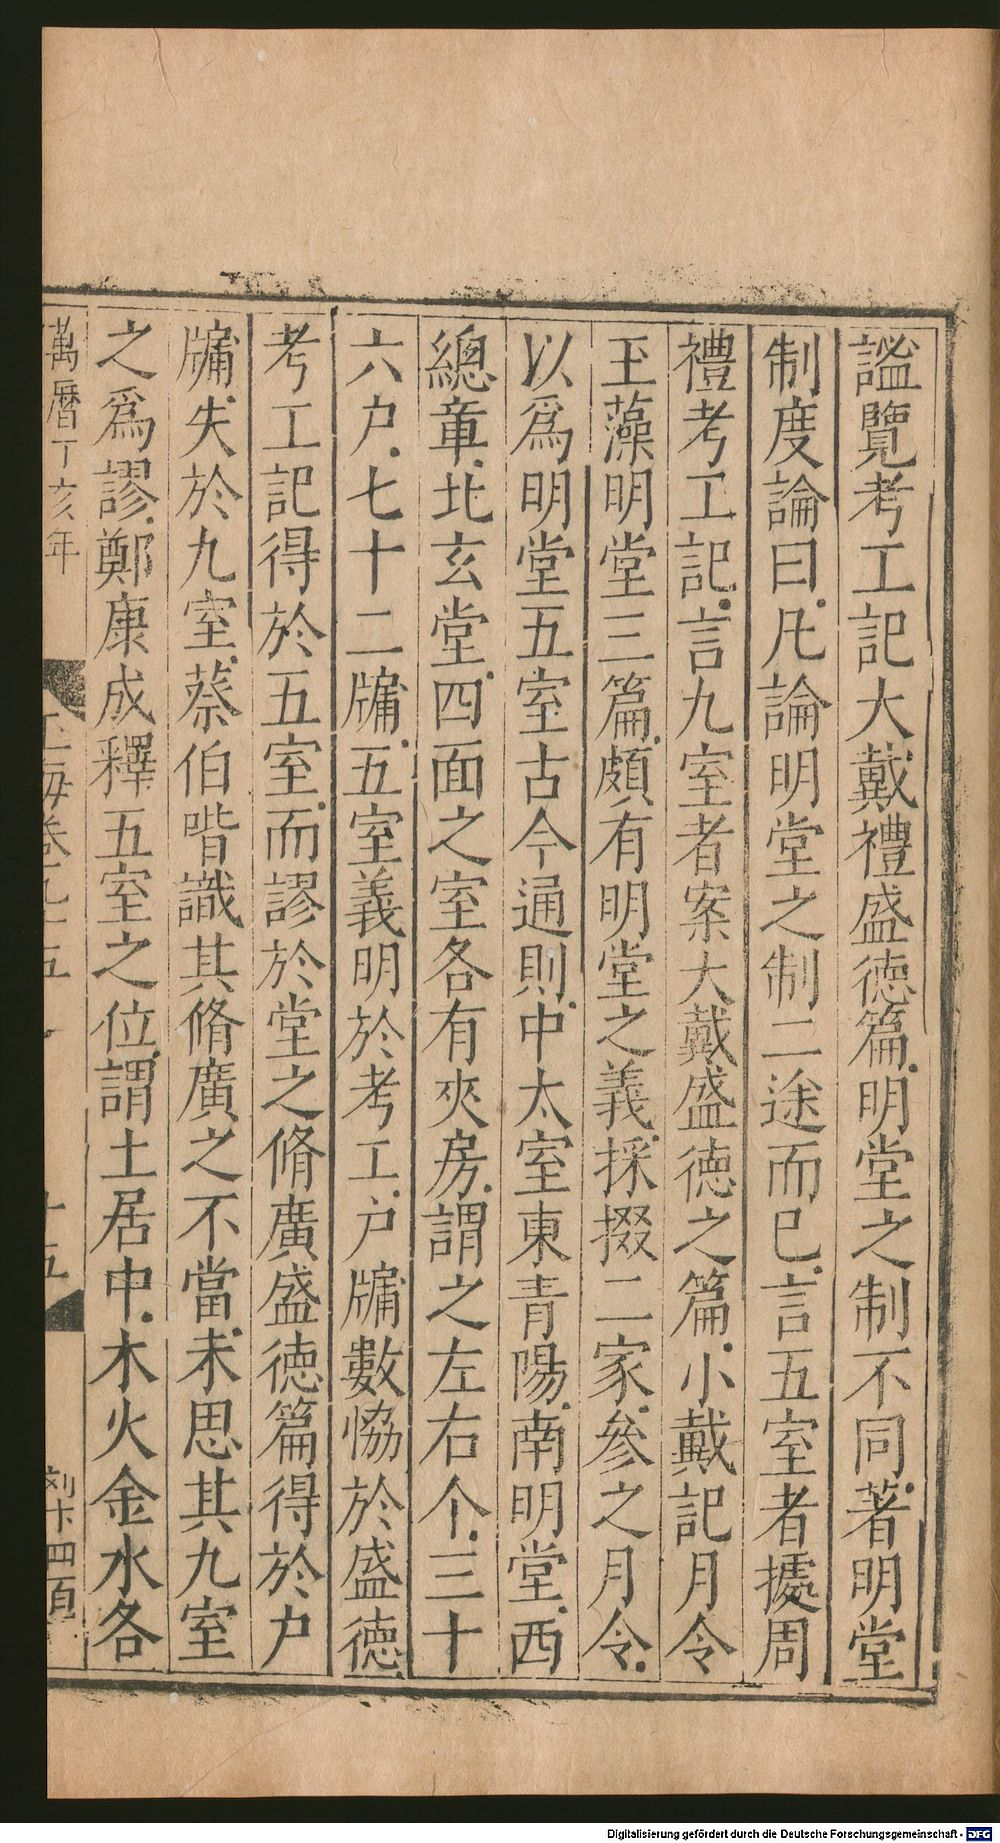 謐覽考工記大戴禮盛徳篇明堂之制不同著明堂
制度論曰凡論明堂之制二途而已言五室者據周
禮考工記言九室者案大戴盛徳之篇小戴記月令
玉藻明堂三篇頗有明堂之義採掇二家參之月令
以爲明堂五室古今通則中太室東青陽南明堂西
總章北玄堂四面之室各有夾房謂之左右个三十
六户七十二牖五室義明於考工户牖數恊於盛徳
考工記得於五室而謬於堂之脩廣盛徳篇得於户
牖失於九室蔡伯喈識其脩廣之不當未思其九室
之爲謬鄭康成釋五室之位謂土居中木火金水各
萬曆丁亥年
玉海卷九十五
十五
刘卞四百
Digitalisierung gefördert durch die Deutsche Forschungsgemeinschaft - DFG